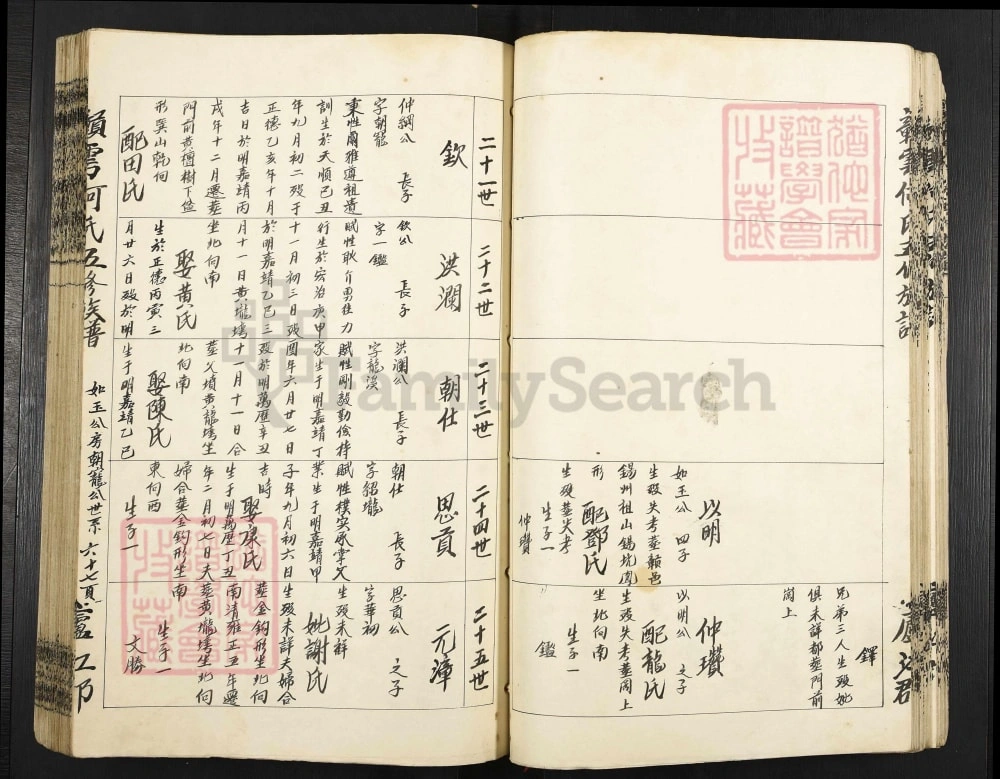 鐸
兄弟三人生歿妣
俱未詳都葬門前
崗上
以明
如玉公 四子
生歿失考葬贛邑
錫州祖山錫坑鳳
形
配鄧氏
生歿葬失考
生子一
仲瓚
仲瓚
以明公 之子
生歿失考葬岡上
坐北向南
配龍氏
生子一
鑑
二十一世
欽
仲綱公 長子
字朝龍
秉性爾雅遵祖遺
訓生於天順己丑
年九月初二歿于
正德乙亥年十月
吉日於明嘉靖丙
戌年十二月遷葬
門前黃檀樹下
形巽山乾向
配田氏
二十二世
洪瀾
欽公 長子
字一鑑
賦性耿介勇往力
行生於宏治庚甲
十一月初三日歿
於明嘉靖乙巳三
月十一日黃龍塢
坐北向南
娶黃氏
生於正德丙寅三
月廿六日歿於明
二十三世
朝仕
洪瀾公 長子
字龍溪
賦性剛毅勤儉持
家生于明嘉靖丁
酉年六月廿七日
歿於明萬歷辛丑
十一月十一日合
葬父墳黃龍塢坐
北向南
娶陳氏
生于明嘉靖乙巳
二十四世
思貢
朝仕 長子
字紹龍
賦性樸實承掌父
業生于明嘉靖甲
子年九月初六日
吉時
娶康氏
生于明萬歷丁丑
年二月初七日夫
婦合葬金鈎形坐
東向西
生子一
二十五世
元漳
思貢公 之子
字華初
生歿未詳
妣謝氏
生歿未詳夫婦合
葬金鈎形坐北向
南清雍正五年遷
葬黃龍塢坐北向
南
生子一
文勝
如玉公房朝龍公世系 六十七頁